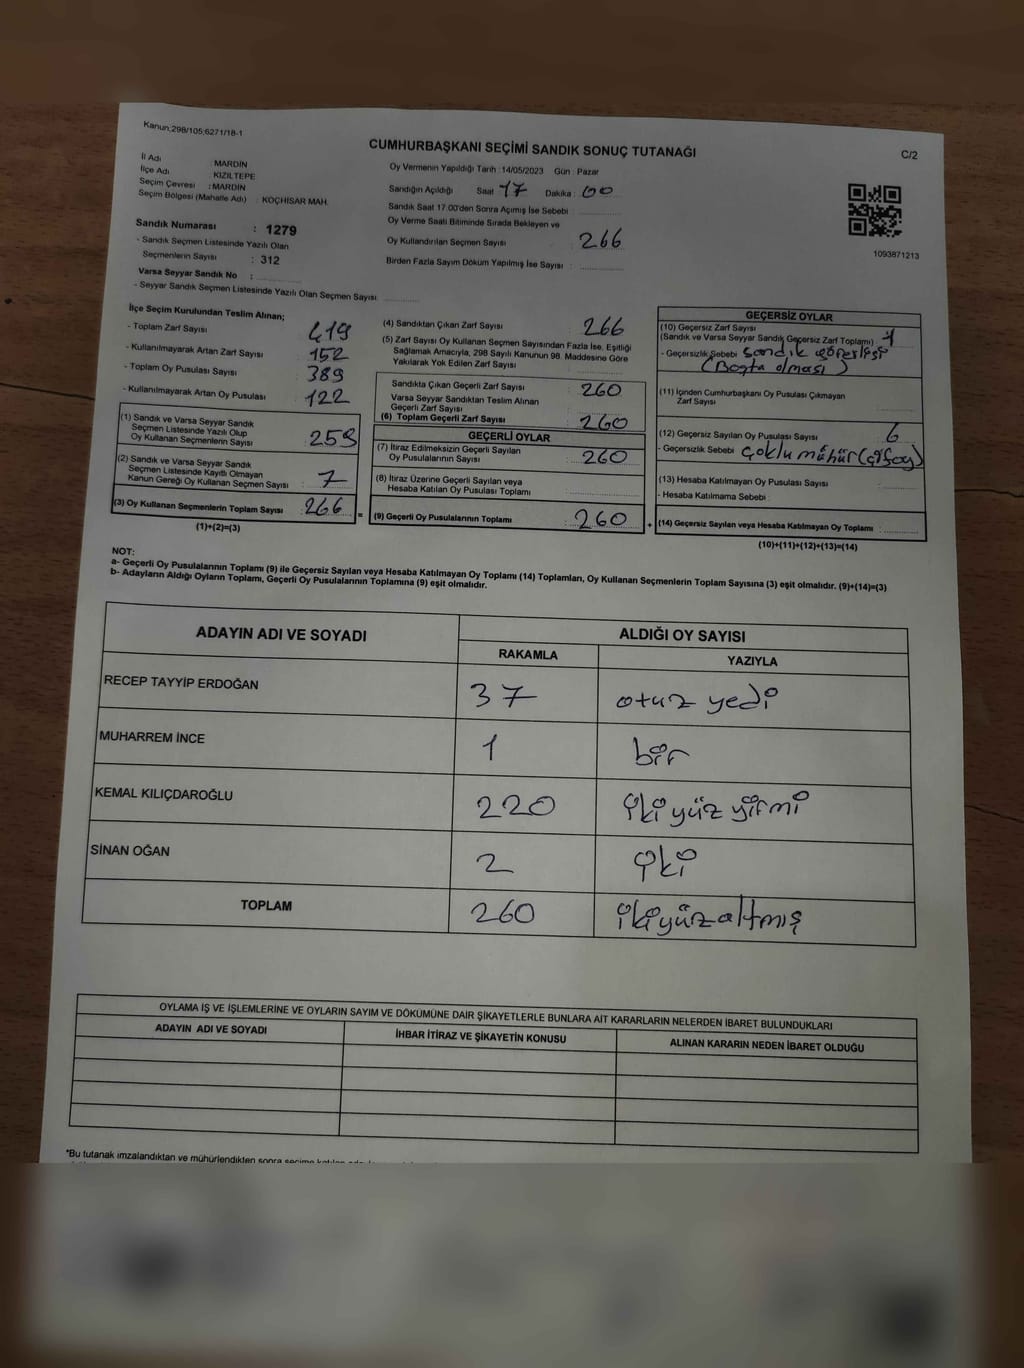 Kanun;298/105;6271/18-1
CUMHURBAŞKANI SEÇİMİ SANDIK SONUÇ TUTANAĞI
C/2
İl Adı : MARDİN
İlçe Adı : KIZILTEPE
Seçim Çevresi : MARDİN
Seçim Bölgesi (Mahalle Adı) : KOÇHİSAR MAH.
Oy Vermenin Yapıldığı Tarih :14/05/2023 Gün : Pazar
Sandığın Açıldığı Saat 17 Dakika : 00
Sandık Saat 17:00'den Sonra Açılmış İse Sebebi :
Oy Verme Saati Bitiminde Sırada Bekleyen ve
Oy Kullandırılan Seçmen Sayısı 266
Birden Fazla Sayım Döküm Yapılmış İse Sayısı :
1093871213
Sandık Numarası : 1279
- Sandık Seçmen Listesinde Yazılı Olan
Seçmenlerin Sayısı : 312
Varsa Seyyar Sandık No :
- Seyyar Sandık Seçmen Listesinde Yazılı Olan Seçmen Sayısı
İlçe Seçim Kurulundan Teslim Alınan;
- Toplam Zarf Sayısı 419
- Kullanılmayarak Artan Zarf Sayısı 152
- Toplam Oy Pusulası Sayısı 389
- Kullanılmayarak Artan Oy Pusulası 122
(1) Sandık ve Varsa Seyyar Sandık
Seçmen Listesinde Yazılı Olup
Oy Kullanan Seçmenlerin Sayısı : 259
(2) Sandık ve Varsa Seyyar Sandık
Seçmen Listesinde Kayıtlı Olmayan
Kanun Gereği Oy Kullanan Seçmen Sayısı : 7
(3) Oy Kullanan Seçmenlerin Toplam Sayısı : 266 =
(1)+(2)=(3)
(4) Sandıktan Çıkan Zarf Sayısı : 266
(5) Zarf Sayısı Oy Kullanan Seçmen Sayısından Fazla İse, Eşitliği
Sağlamak Amacıyla, 298 Sayılı Kanunun 98. Maddesine Göre
Yakılarak Yok Edilen Zarf Sayısı :
Sandıkta Çıkan Geçerli Zarf Sayısı : 260
Varsa Seyyar Sandıktan Teslim Alınan
Geçerli Zarf Sayısı :
(6) Toplam Geçerli Zarf Sayısı : 260
GEÇERLİ OYLAR
(7) İtiraz Edilmeksizin Geçerli Sayılan
Oy Pusulalarının Sayısı : 260
(8) İtiraz Üzerine Geçerli Sayılan veya
Hesaba Katılan Oy Pusulası Toplamı :
(9) Geçerli Oy Pusulalarının Toplamı : 260 +
GEÇERSİZ OYLAR
(10) Geçersiz Zarf Sayısı
(Sandık ve Varsa Seyyar Sandık Geçersiz Zarf Toplamı) 1
- Geçersizlik Sebebi sandık
olması)
(11) İçinden Cumhurbaşkanı Oy Pusulası Çıkmayan
Zarf Sayısı
(12) Geçersiz Sayılan Oy Pusulası Sayısı : 6
- Geçersizlik Sebebi çoklu mühür
(13) Hesaba Katılmayan Oy Pusulası Sayısı :
- Hesaba Katılmama Sebebi :
(14) Geçersiz Sayılan veya Hesaba Katılmayan Oy Toplamı :
(10)+(11)+(12)+(13)=(14)
NOT:
a- Geçerli Oy Pusulalarının Toplamı (9) ile Geçersiz Sayılan veya Hesaba Katılmayan Oy Toplamı (14) Toplamları, Oy Kullanan Seçmenlerin Toplam Sayısına (3) eşit olmalıdır. (9)+(14)=(3)
b- Adayların Aldığı Oyların Toplamı, Geçerli Oy Pusulalarının Toplamına (9) eşit olmalıdır.
ADAYIN ADI VE SOYADI
ALDIĞI OY SAYISI
RAKAMLA YAZIYLA
RECEP TAYYİP ERDOĞAN 37 otuz yedi
MUHARREM İNCE 1 bir
KEMAL KILIÇDAROĞLU 220 iki yüz yirmi
SİNAN OĞAN 2 iki
TOPLAM 260 ikiyüzaltmış
OYLAMA İŞ VE İŞLEMLERİNE VE OYLARIN SAYIM VE DÖKÜMÜNE DAİR ŞİKAYETLERLE BUNLARA AİT KARARLARIN NELERDEN İBARET BULUNDUKLARI
ADAYIN ADI VE SOYADI İHBAR İTİRAZ VE ŞİKAYETİN KONUSU ALINAN KARARIN NEDEN İBARET OLDUĞU
*Bu tutanak imzalandıktan ve mühürlendikten sonra seçime